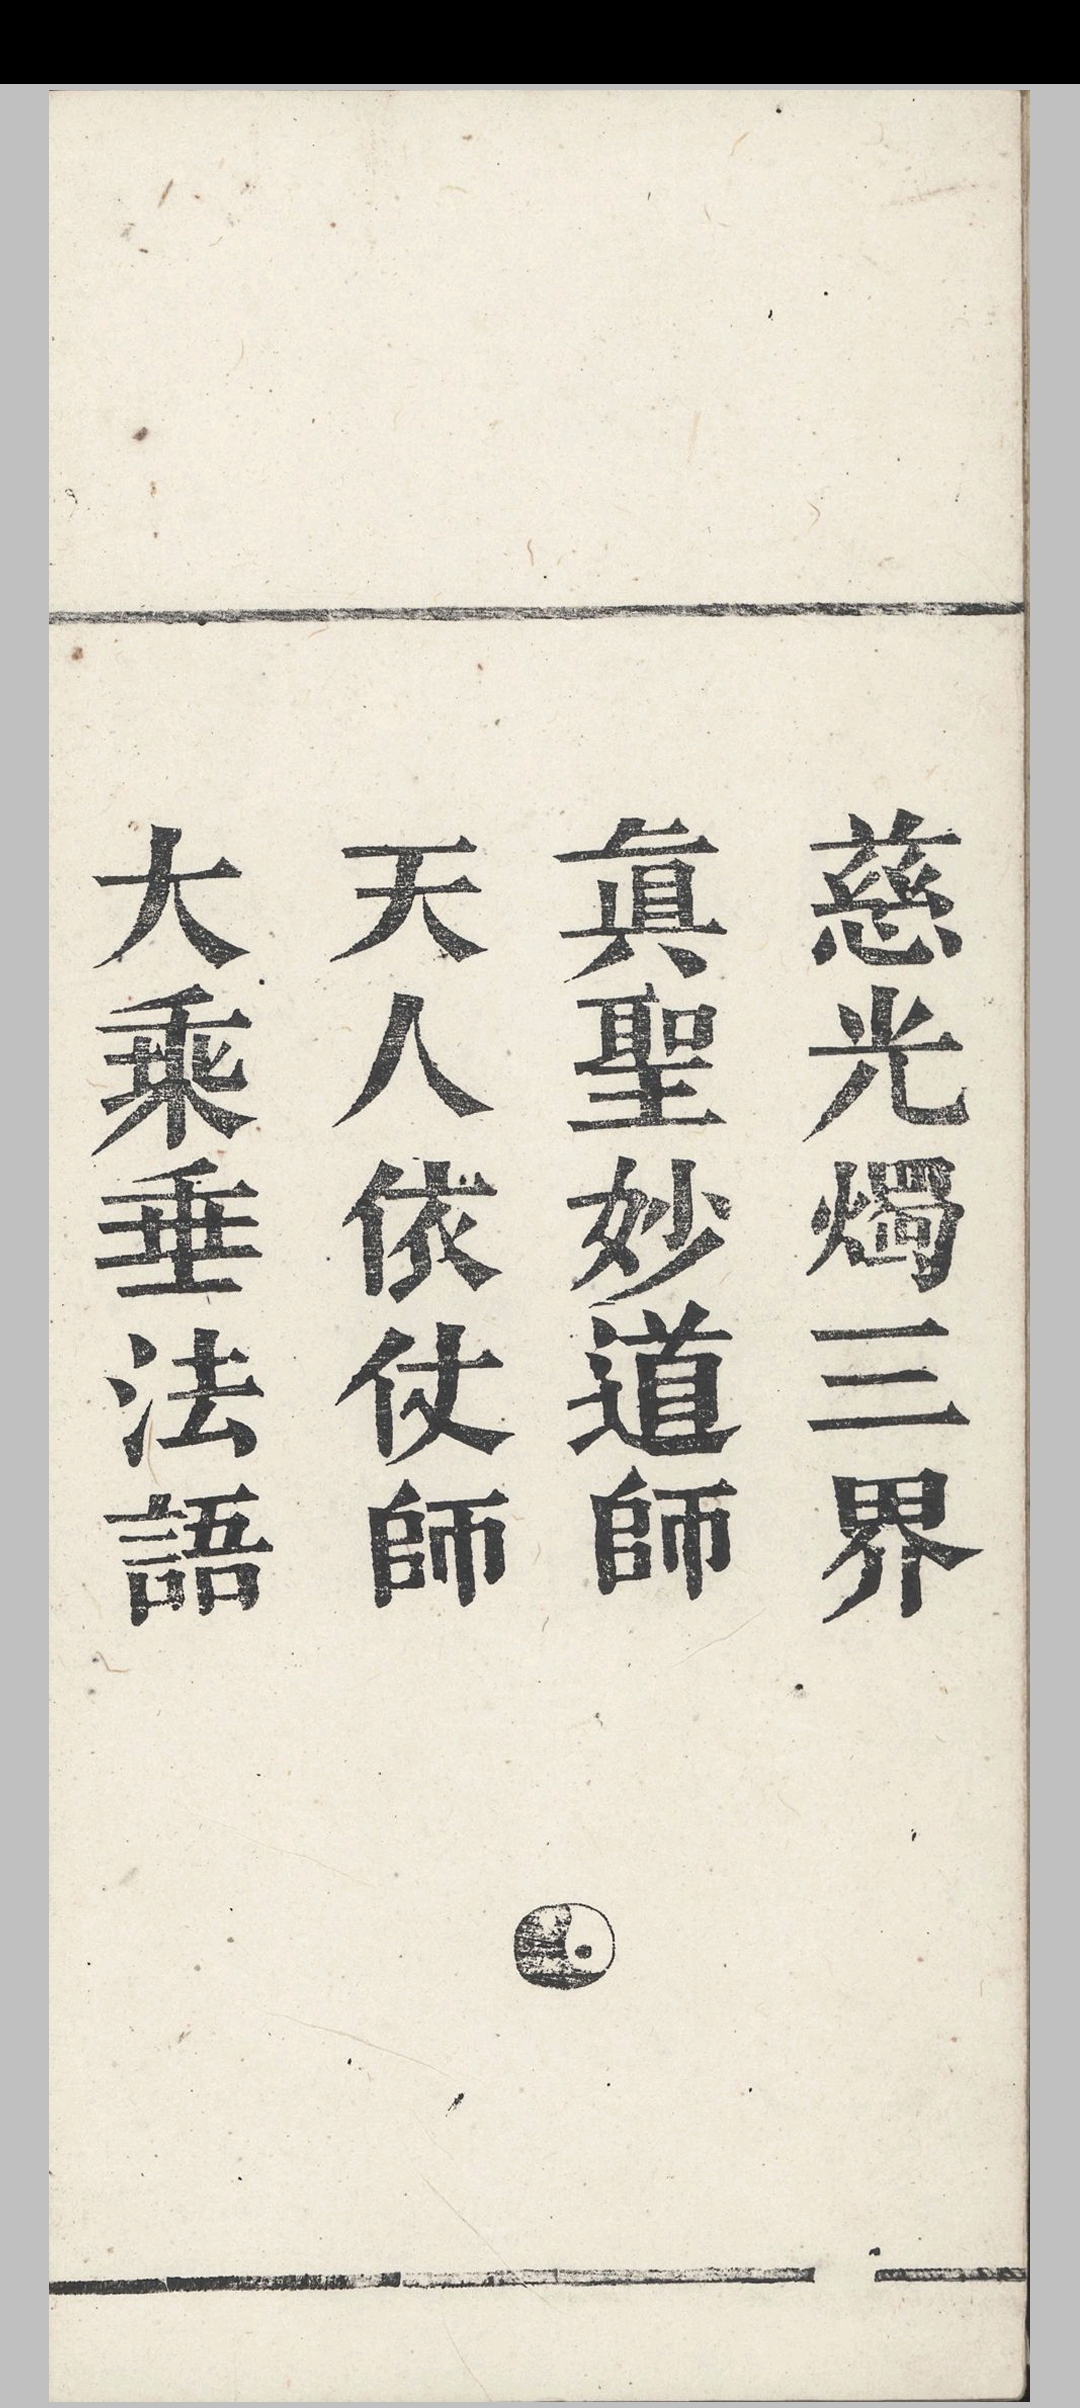 慈光燭三界
眞聖妙道師
天人依仗師
大乘垂法語